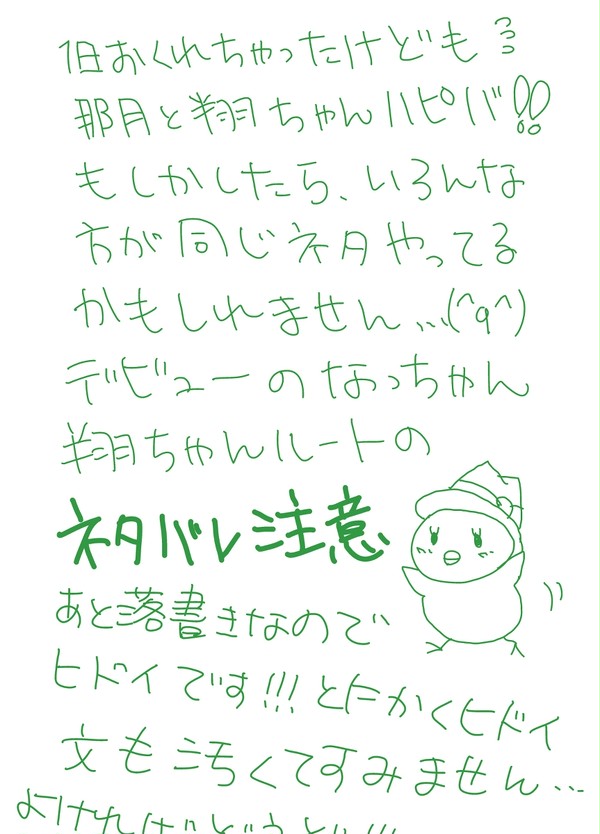 1日おくれちゃったけども
那月と翔ちゃんハピバ!!
もしかしたら、いろんな
方が同じネタやってる
かもしれません...(^q^)
デビューのなっちゃん
翔ちゃんルートの
ネタバレ注意
あと落書きなので
ヒドイです!!! とにかくヒドイ
文も汚くてすみません...
よければどうぞ!!!